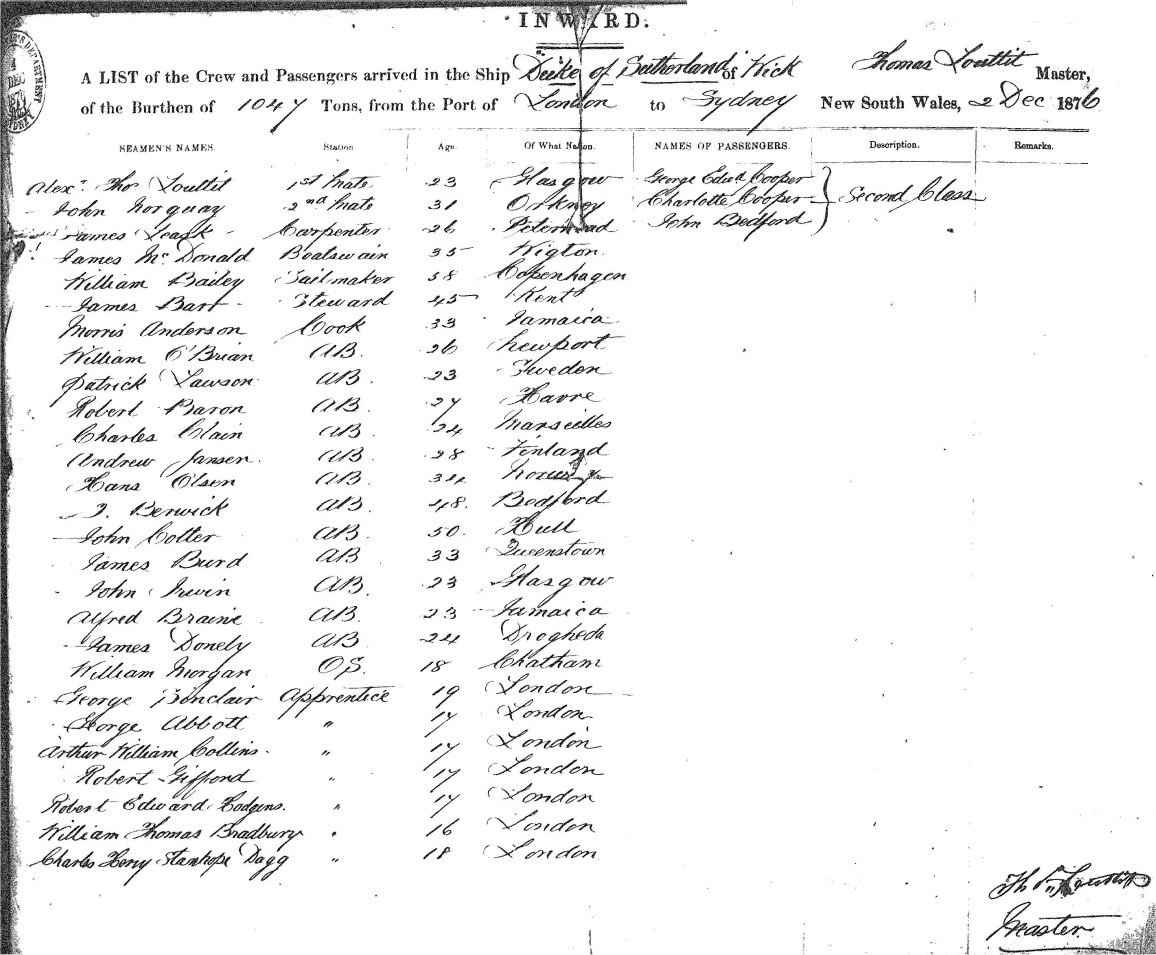 INWARD.
A LIST of the Crew and Passengers arrived in the Ship Duke of Sutherland of Wick Thomas Louttit Master,
of the Burthen of 1047 Tons, from the Port of London to Sydney New South Wales, 2 Dec 1876
SEAMEN'S NAMES. Station. Age. Of What Nation. NAMES OF PASSENGERS. Description. Remarks.
Alexr. Thos Louttit 1st Mate 23 Glasgow George Edwd Cooper
John Norquay 2nd Mate 31 Orkney Charlotte Cooper Second Class
James Leask Carpenter 26 Peterhead John Bedford
James McDonald Boatswain 35 Wigton
William Bailey Sailmaker 58 Copenhagen
James Bart Steward 45 Kent
Morris Anderson Cook 33 Jamaica
William O'Brian AB. 26 Newport
Patrick Lawson AB. 23 Sweden
Robert Baron AB. 27 Havre
Charles Clain AB. 24 Marseilles
Andrew Jansen AB. 28 Finland
Hans Olsen AB. 34 Norway
J. Berwick AB. 48. Bedford
John Cotter AB 50. Hull
James Burd AB 33 Queenstown
John Irwin AB. 23 Glasgow
Alfred Braine AB. 23 Jamaica
James Donely AB. 24 Drogheda
William Morgan OS. 18 Chatham
George Sinclair Apprentice 19 London
George Abbott " 17 London
Arthur William Collins. " 17 London
Robert Gifford " 17 London
Robert Edward Hodgens. " 17 London
William Thomas Bradbury " 16 London
Charles Henry Stanhope Dagg " 18 London
Louttit
Master.